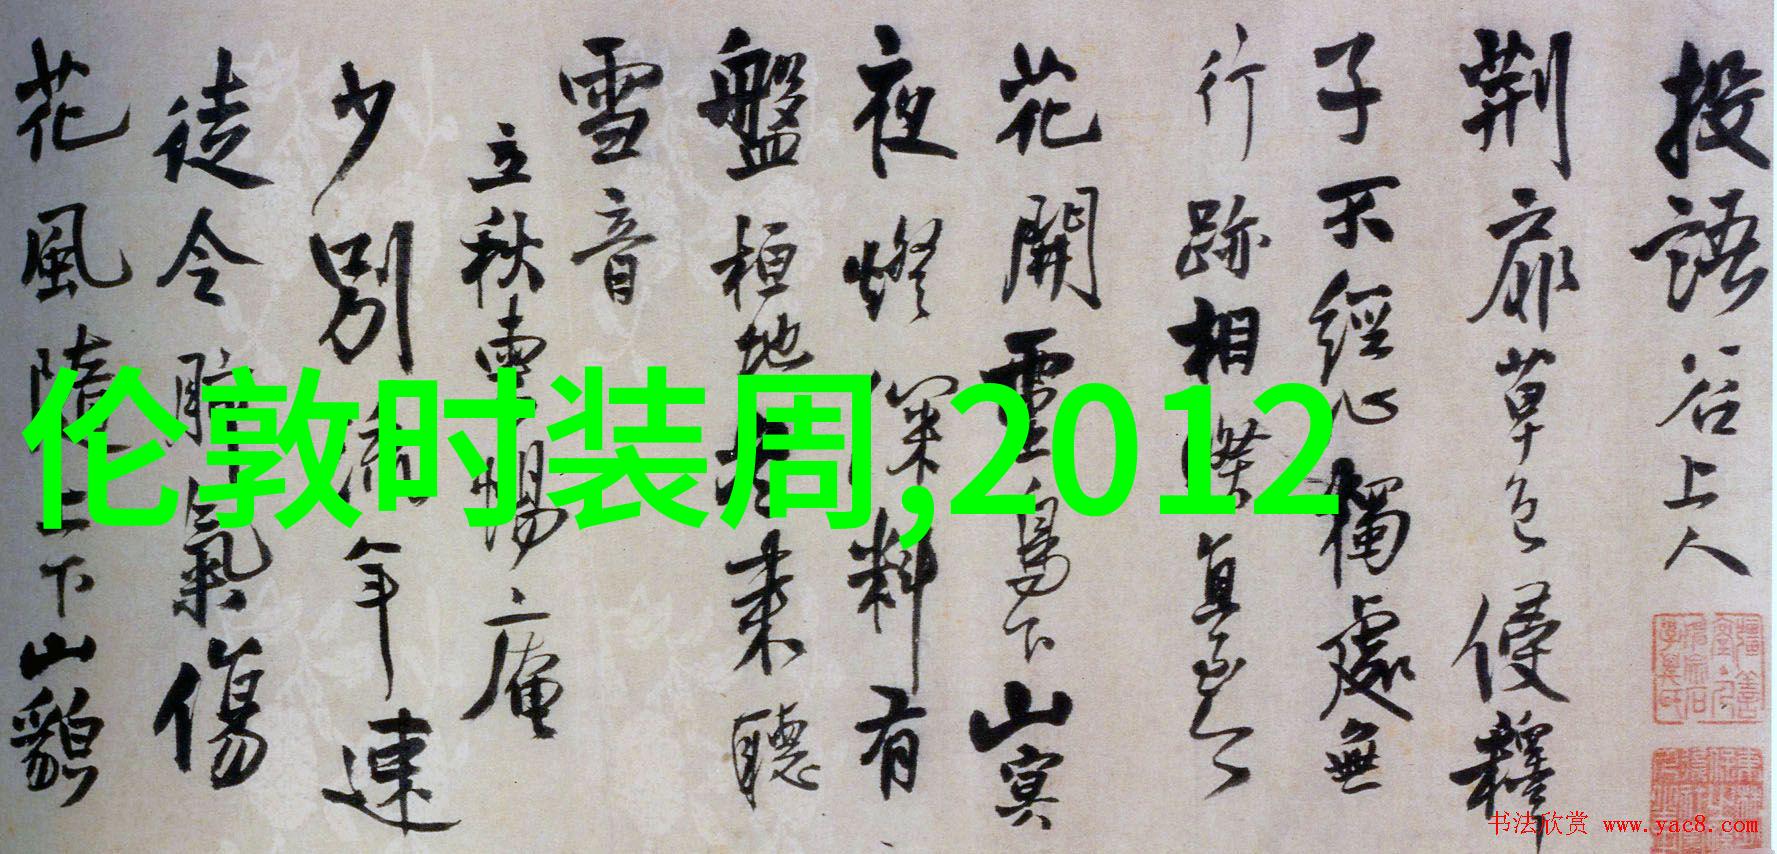 投語谷上人
荆扉草色侵釋
子不經心獨處無
行跡相真
花開靈鳥下山冥
夜燈深料有
盤桓地來聽
雪音
立秋暢庵
少別流年速
徒令氣傷
花風隋上下山貌
伦敦时装周,2012
书法欣赏 www.yac8.com